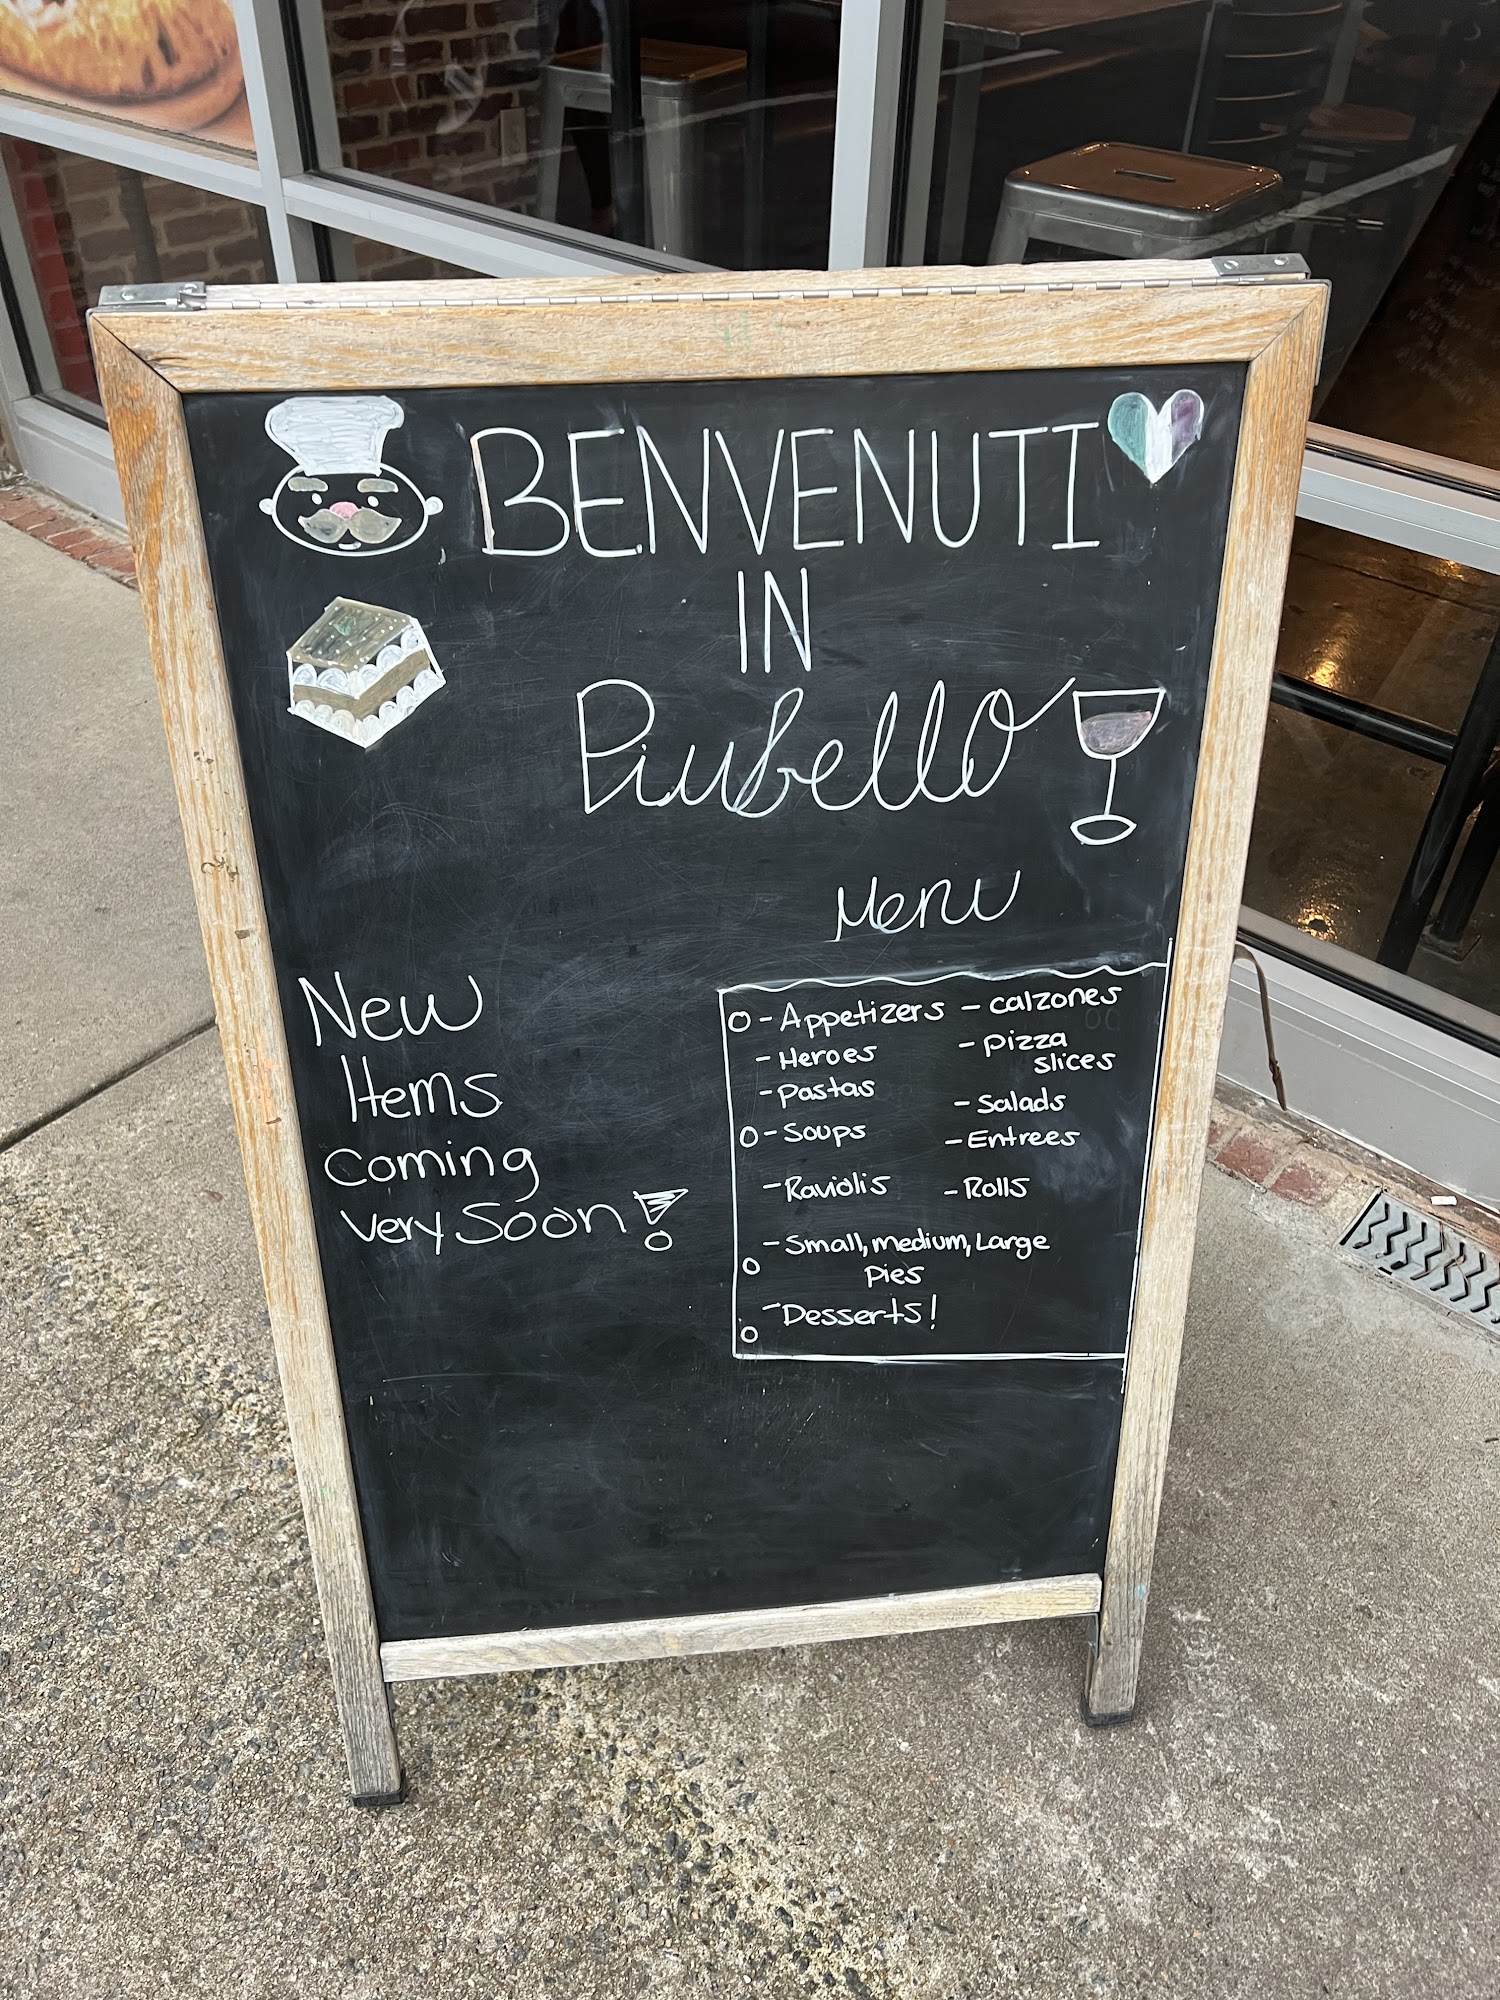 BENVENUTI
IN
Piubello
Menu
New
Items
Coming
Very Soon!
- Appetizers
- Heroes
- Pastas
- Soups
- Raviolis
- calzones
- Pizza
slices
- Salads
- Entrees
- Rolls
- Small, medium, Large
Pies
- Desserts!